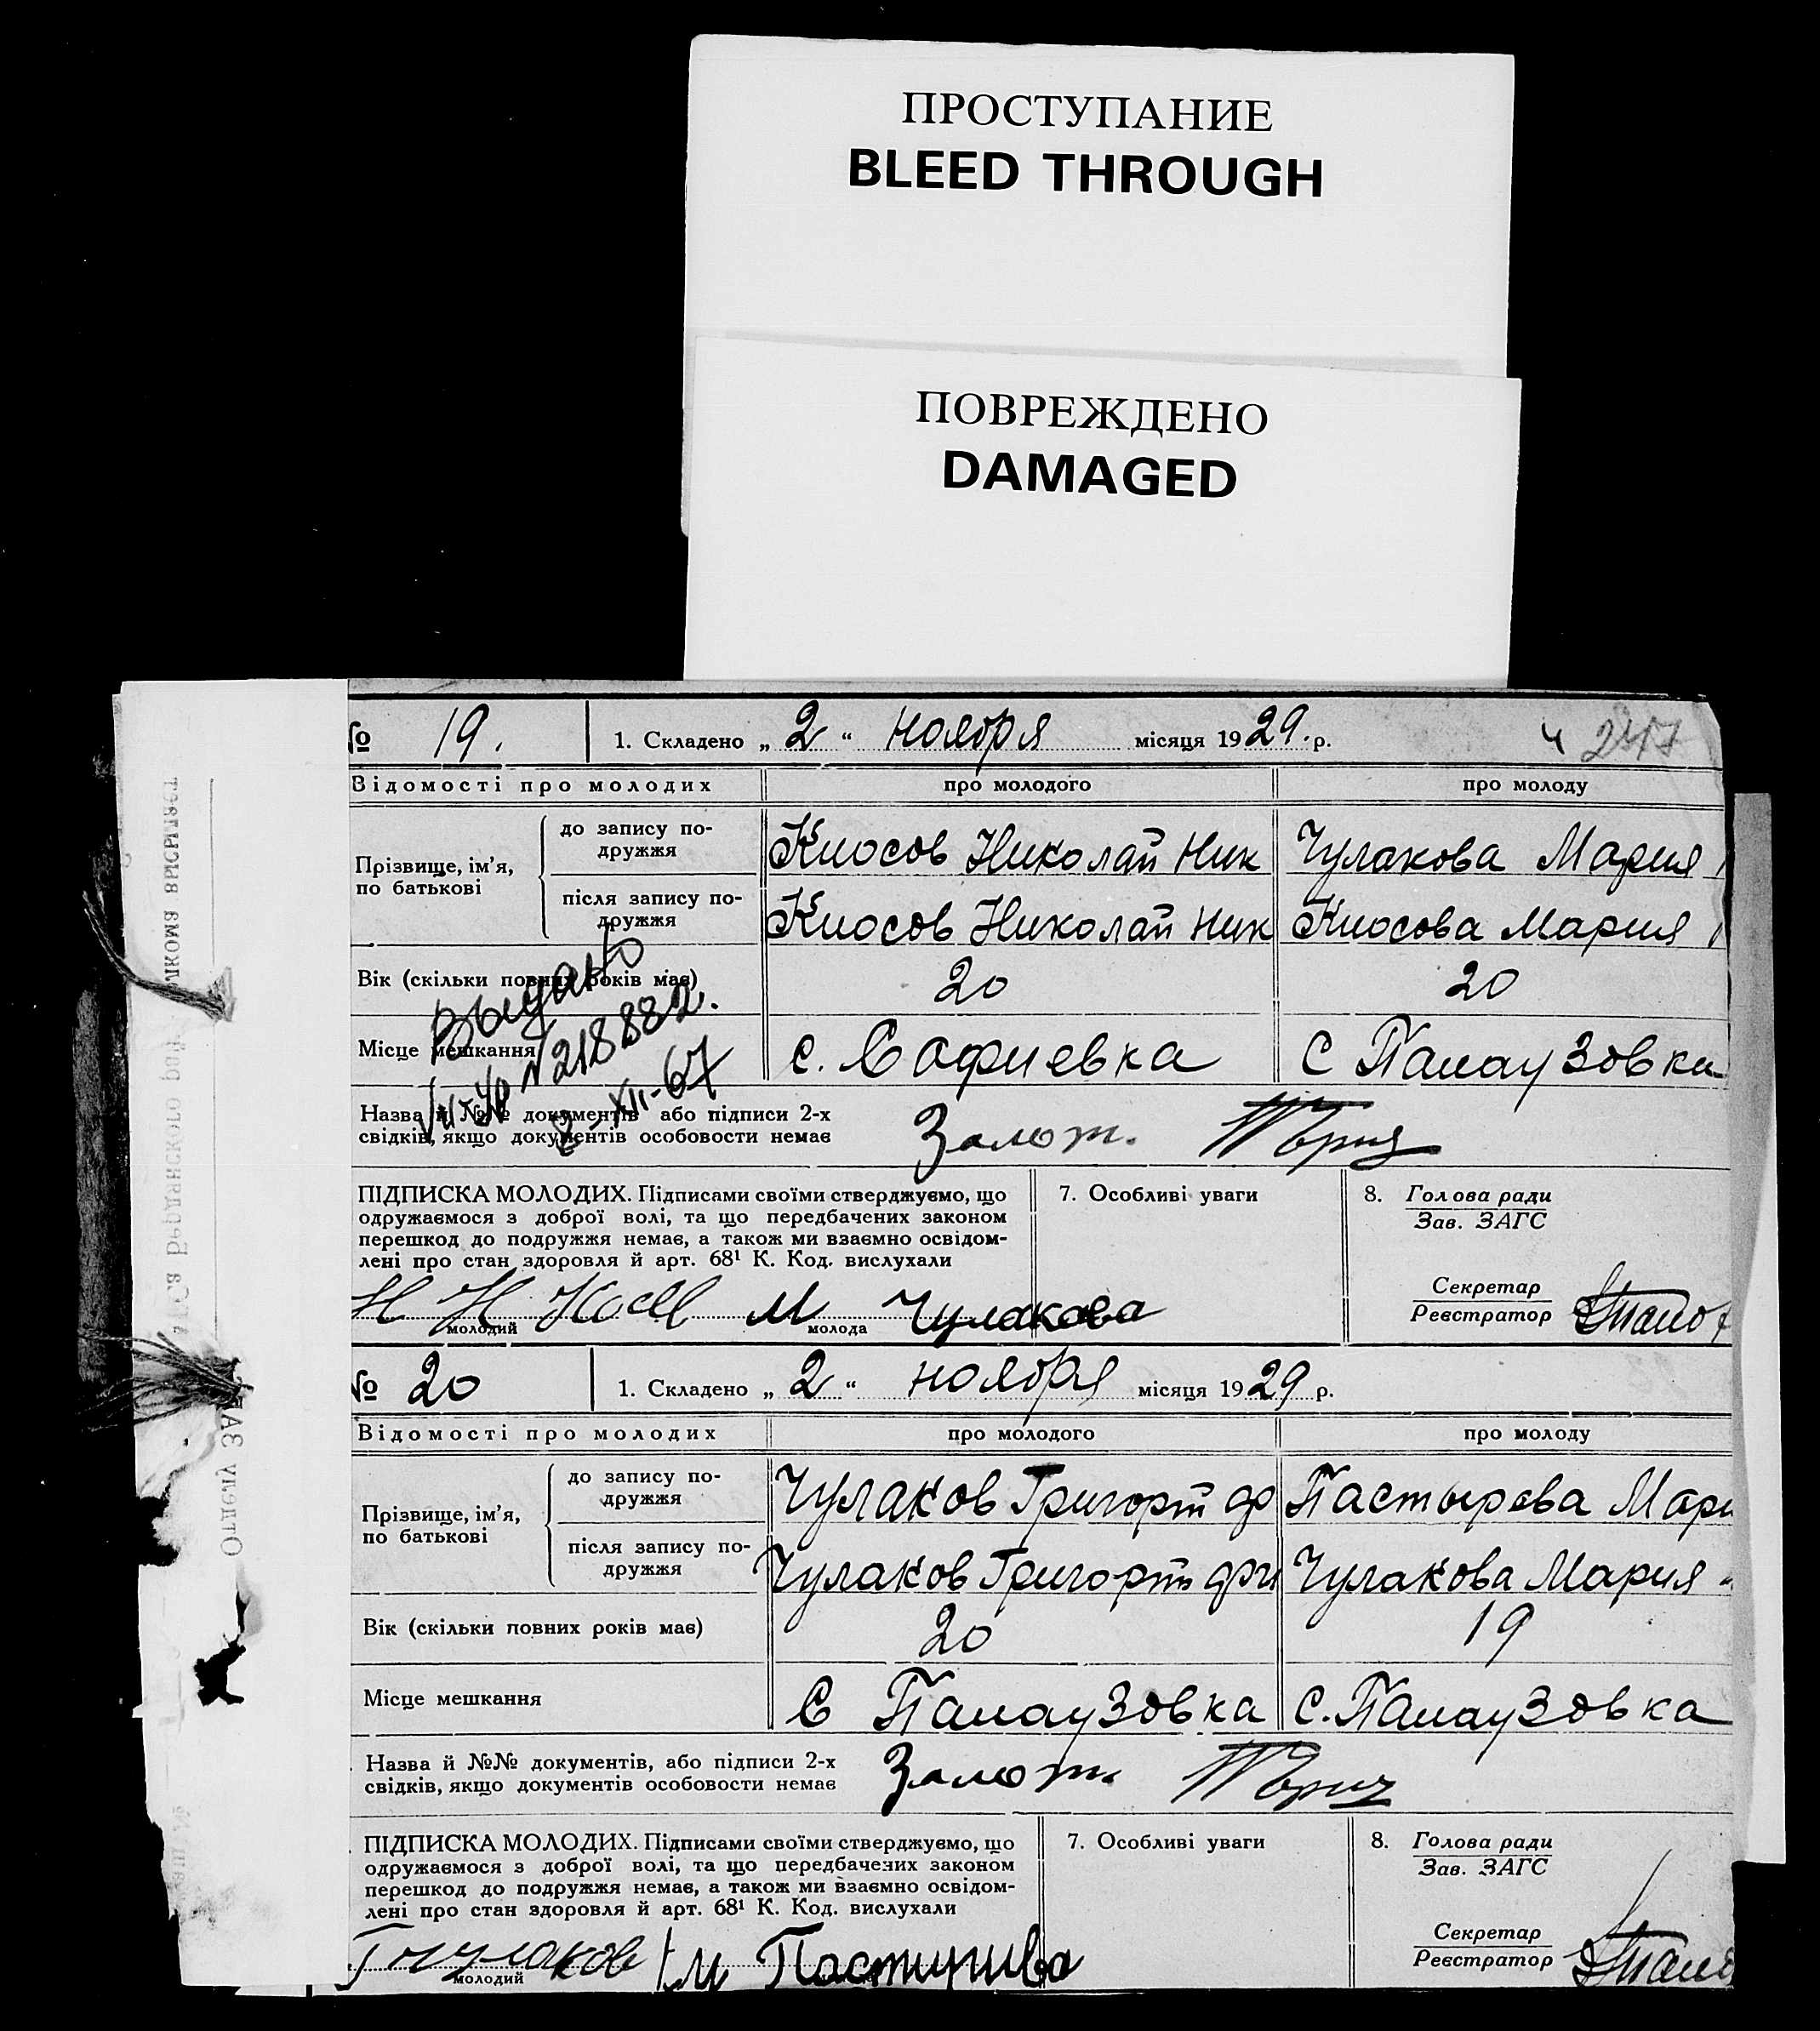 ПРОСТУПАНИЕ
BLEED THROUGH
ПОВРЕЖДЕНО
DAMAGED
№ 19. 1. Складено „2“ ноября місяця 1929.р. 4 247
Відомості про молодих про молодого про молоду
Прізвище, ім'я, по батькові
до запису подружжя Киосов Николай Ник Чулакова Мария
після запису подружжя Киосов Николай Ник Киосова Мария
Вік (скільки повних років має) 20 20
Выдано
Місце мешкання с. Софиевка С Палаузовка
№218882.
XII-67
Назва й №№ документів або підписи 2-х
свідків, якщо документів особовости немає Залот.
ПІДПИСКА МОЛОДИХ. Підписами своїми стверджуємо, що
одружаємося з доброї волі, та що передбачених законом
перешкод до подружжя немає, а також ми взаємно освідом-
лені про стан здоровля й арт. 68¹ К. Код. вислухали
7. Особливі уваги
8. Голова ради
Зав. ЗАГС
Секретар
Реєстратор
Н Н М Чулакова
молодий молода
№ 20 1. Складено „2“ ноября місяця 1929 р.
Відомості про молодих про молодого про молоду
Прізвище, ім'я, по батькові
до запису подружжя Чулаков Григорий Пастырева Мари
після запису подружжя Чулаков Григорий Чулакова Мария
Вік (скільки повних років має) 20 19
Місце мешкання С Палаузовка С. Палаузовка
Назва й №№ документів, або підписи 2-х
свідків, якщо документів особовости немає Залот.
ПІДПИСКА МОЛОДИХ. Підписами своїми стверджуємо, що
одружаємося з доброї волі, та що передбачених законом
перешкод до подружжя немає, а також ми взаємно освідом-
лені про стан здоровля й арт. 68¹ К. Код. вислухали
7. Особливі уваги
8. Голова ради
Зав. ЗАГС
Секретар
Реєстратор
Г Чулаков М
молодий